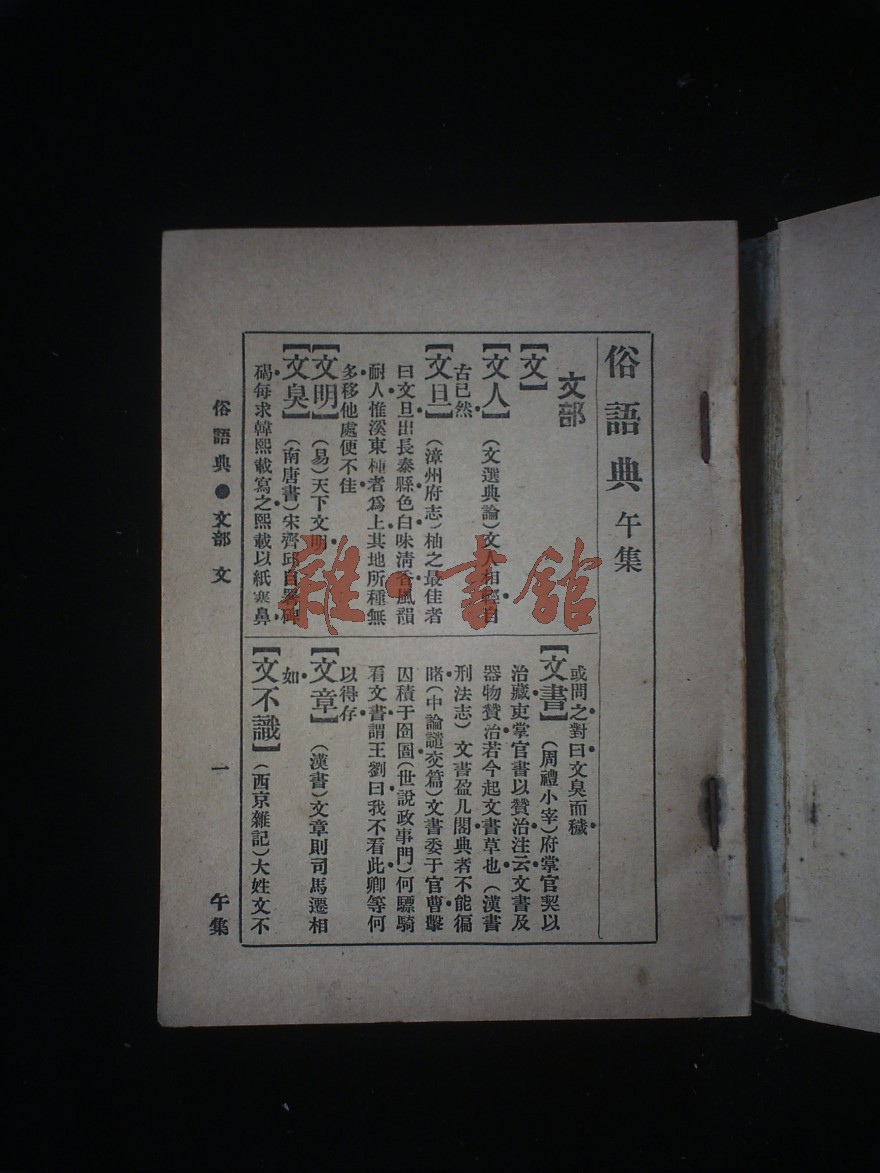 俗語典 午集
文部
【文】
【文人】（文選典論）文人相輕自
古已然
【文旦】（漳州府志）柚之最佳者
曰文旦出長泰縣色白味清香風韻
耐人惟溪東種者爲上其地所種無
多移他處便不佳
【文明】（易）天下文明
【文臭】（南唐書）宋齊邱自署碑
碣每求韓熙載寫之熙載以紙塞鼻
或問之對曰文臭而穢
【文書】（周禮小宰）府掌官契以
治藏吏掌官書以贊治注云文書及
器物贊治若今起文書草也（漢書
刑法志）文書盈几閣典者不能徧
睹（中論譴交篇）文書委于官曹繫
囚積于囹圄（世說政事門）何驃騎
看文書謂王劉曰我不看此卿等何
以得存
【文章】（漢書）文章則司馬遷相
如
【文不識】（西京雜記）大姓文不
俗語典●文部 文 一 午集
雜·書館